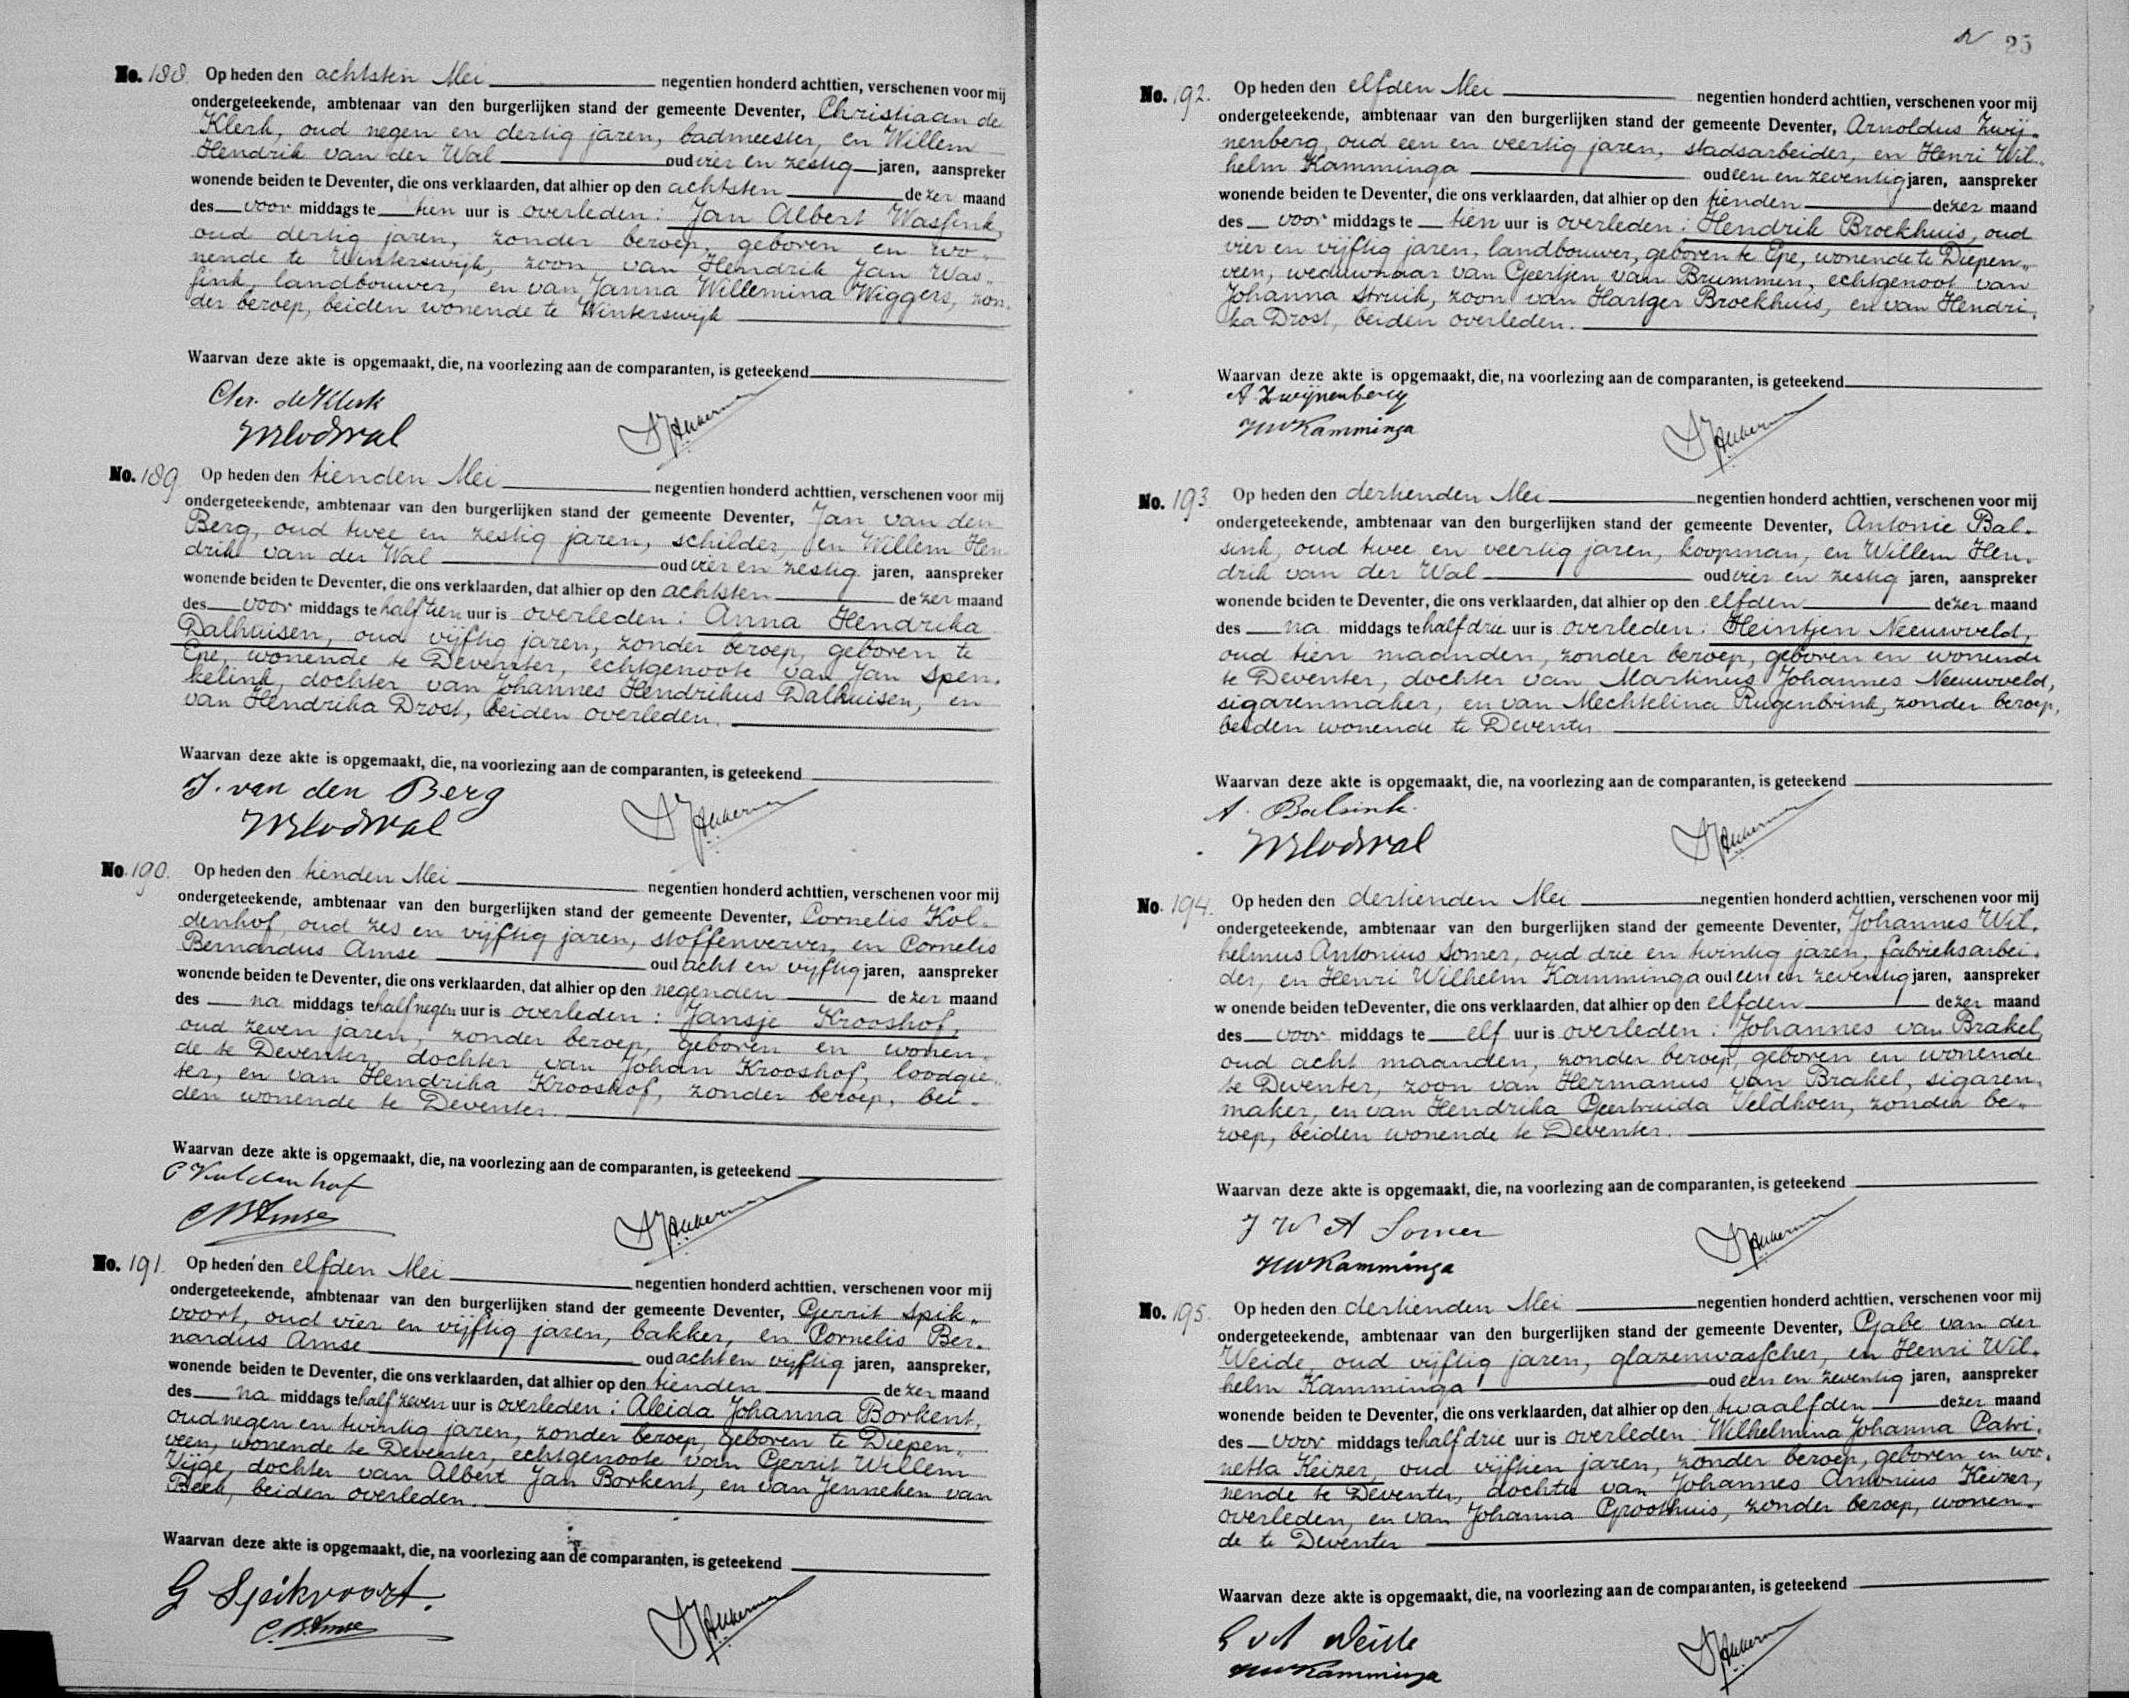 No. 188. Op heden den achtsten Mei negentien honderd achttien, verschenen voor mij
ondergeteekende, ambtenaar van den burgerlijken stand der gemeente Deventer, Christiaan de
Klerk, oud negen en dertig jaren, badmeester, en Willem
Hendrik van der Wal oud vier en zestig jaren, aanspreker
wonende beiden te Deventer, die ons verklaarden, dat alhier op den achtsten dezer maand
des voor middags te tien uur is overleden: Jan Albert Wassink,
oud dertig jaren, zonder beroep, geboren en wo„
nende te Winterswijk, zoon van Hendrik Jan Was„
sink, landbouwer, en van Janna Willemina Wiggers, zon„
der beroep, beiden wonende te Winterswijk
Waarvan deze akte is opgemaakt, die, na voorlezing aan de comparanten, is geteekend
Chr. de Klerk
WHvdWal
No. 189 Op heden den tienden Mei negentien honderd achttien, verschenen voor mij
ondergeteekende, ambtenaar van den burgerlijken stand der gemeente Deventer, Jan van den
Berg, oud twee en zestig jaren, schilder, en Willem Hen
drik van der Wal oud vier en zestig jaren, aanspreker
wonende beiden te Deventer, die ons verklaarden, dat alhier op den achtsten dezer maand
des voor middags te half tien uur is overleden: Anna Hendrika
Dalhuisen, oud vijftig jaren, zonder beroep, geboren te
Epe, wonende te Deventer, echtgenoote van Jan Spen„
kelink, dochter van Johannes Hendrikus Dalhuisen, en
van Hendrika Drost, beiden overleden.
Waarvan deze akte is opgemaakt, die, na voorlezing aan de comparanten, is geteekend
J. van den Berg
WHvdWal
No. 190. Op heden den tienden Mei negentien honderd achttien, verschenen voor mij
ondergeteekende, ambtenaar van den burgerlijken stand der gemeente Deventer, Cornelis Kol„
denhof, oud zes en vijftig jaren, stoffenverver, en Cornelis
Bernardus Amse oud acht en vijftig jaren, aanspreker
wonende beiden te Deventer, die ons verklaarden, dat alhier op den negenden dezer maand
des na middags te half negen uur is overleden: Jansje Krooshof,
oud zeven jaren, zonder beroep, geboren en wonen„
de te Deventer, dochter van Johan Krooshof, loodgie„
ter, en van Hendrika Krooshof, zonder beroep, bei„
den wonende te Deventer.
Waarvan deze akte is opgemaakt, die, na voorlezing aan de comparanten, is geteekend
C Koldenhof
CBAmse
No. 191. Op heden den elfden Mei negentien honderd achttien, verschenen voor mij
ondergeteekende, ambtenaar van den burgerlijken stand der gemeente Deventer, Gerrit Spik„
voort, oud vier en vijftig jaren, bakker, en Cornelis Ber„
nardus Amse oud acht en vijftig jaren, aanspreker,
wonende beiden te Deventer, die ons verklaarden, dat alhier op den tienden dezer maand
des na middags te half zeven uur is overleden: Aleida Johanna Borkent,
oud negen en twintig jaren, zonder beroep, geboren te Diepen„
veen, wonende te Deventer, echtgenoote van Gerrit Willem
Vijge, dochter van Albert Jan Borkent, en van Jenneken van
Beek, beiden overleden.
Waarvan deze akte is opgemaakt, die, na voorlezing aan de comparanten, is geteekend
G Spikvoort.
C.B.Amse
25
No. 192. Op heden den elfden Mei negentien honderd achttien, verschenen voor mij
ondergeteekende, ambtenaar van den burgerlijken stand der gemeente Deventer, Arnoldus Zwij„
nenberg, oud een en veertig jaren, stadsarbeider, en Henri Wil„
helm Kamminga oud een en zeventig jaren, aanspreker
wonende beiden te Deventer, die ons verklaarden, dat alhier op den tienden dezer maand
des voor middags te tien uur is overleden: Hendrik Broekhuis, oud
vier en vijftig jaren, landbouwer, geboren te Epe, wonende te Diepen„
veen, weduwnaar van Geertjen van Brummen, echtgenoot van
Johanna Struik, zoon van Hartger Broekhuis, en van Hendri„
ka Drost, beiden overleden.
Waarvan deze akte is opgemaakt, die, na voorlezing aan de comparanten, is geteekend
A Zwijnenberg
HWKamminga
No. 193 Op heden den dertienden Mei negentien honderd achttien, verschenen voor mij
ondergeteekende, ambtenaar van den burgerlijken stand der gemeente Deventer, Antonie Bal„
sink, oud twee en veertig jaren, koopman, en Willem Hen„
drik van der Wal oud vier en zestig jaren, aanspreker
wonende beiden te Deventer, die ons verklaarden, dat alhier op den elfden dezer maand
des na middags te half drie uur is overleden: Heintjen Neeuwveld,
oud tien maanden, zonder beroep, geboren en wonende
te Deventer, dochter van Martinus Johannes Neeuwveld,
sigarenmaker, en van Mechtelina Rugenbrink, zonder beroep,
beiden wonende te Deventer
Waarvan deze akte is opgemaakt, die, na voorlezing aan de comparanten, is geteekend
A. Balsink.
WHvdWal
No. 194. Op heden den dertienden Mei negentien honderd achttien, verschenen voor mij
ondergeteekende, ambtenaar van den burgerlijken stand der gemeente Deventer, Johannes Wil„
helmus Antonius Somer, oud drie en twintig jaren, fabrieksarbei„
der, en Henri Wilhelm Kamminga oud een en zeventig jaren, aanspreker
wonende beiden te Deventer, die ons verklaarden, dat alhier op den elfden dezer maand
des voor middags te elf uur is overleden: Johannes van Brakel,
oud acht maanden, zonder beroep, geboren en wonende
te Deventer, zoon van Hermanus van Brakel, sigaren„
maker, en van Hendrika Geertruida Veldhoen, zonder be„
roep, beiden wonende te Deventer.
Waarvan deze akte is opgemaakt, die, na voorlezing aan de comparanten, is geteekend
J W A Somer
HWKamminga
No. 195. Op heden den dertienden Mei negentien honderd achttien, verschenen voor mij
ondergeteekende, ambtenaar van den burgerlijken stand der gemeente Deventer, Gabe van der
Weide, oud vijftig jaren, glazenwasscher, en Henri Wil„
helm Kamminga oud een en zeventig jaren, aanspreker
wonende beiden te Deventer, die ons verklaarden, dat alhier op den twaalfden dezer maand
des voor middags te half drie uur is overleden: Wilhelmina Johanna Patri„
netta Keizer, oud vijftien jaren, zonder beroep, geboren en wo„
nende te Deventer, dochter van Johannes Antonius Keizer,
overleden, en van Johanna Groothuis, zonder beroep, wonen„
de te Deventer
Waarvan deze akte is opgemaakt, die, na voorlezing aan de comparanten, is geteekend
G v d Weide
HWKamminga